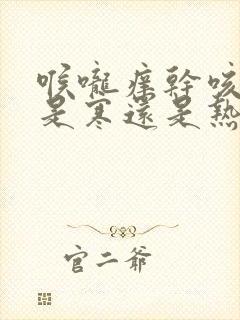 喉嚨痒幹咳
是寒還是熱
官二爺